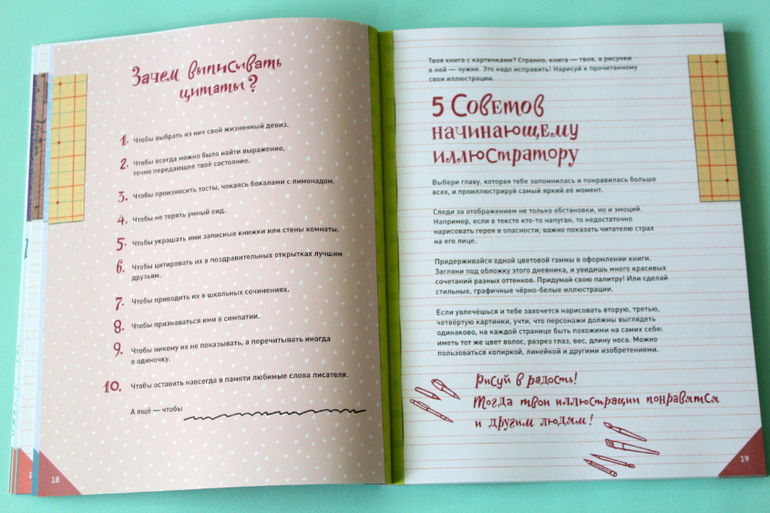 Зачем выписывать
цитаты?
1. Чтобы выбрать из них свой жизненный девиз.
2. Чтобы всегда можно было найти выражение,
точно передающее твоё состояние.
3. Чтобы произносить тосты, чокаясь бокалами с лимонадом.
4. Чтобы не терять умный вид.
5. Чтобы украшать ими записные книжки или стены комнаты.
6. Чтобы цитировать их в поздравительных открытках лучшим
друзьям.
7. Чтобы приводить их в школьных сочинениях.
8. Чтобы признаваться ими в симпатии.
9. Чтобы никому их не показывать, а перечитывать иногда
в одиночку.
10. Чтобы оставить навсегда в памяти любимые слова писателя.
А ещё — чтобы
18
Твоя книга с картинками? Странно, книга — твоя, а рисунки
в ней — чужие. Это надо исправить! Нарисуй к прочитанному
свои иллюстрации.
5 Советов
начинающему
иллюстратору
Выбери главу, которая тебе запомнилась и понравилась больше
всех, и проиллюстрируй самый яркий её момент.
Следи за отображением не только обстановки, но и эмоций.
Например, если в тексте кто-то напуган, то недостаточно
нарисовать героя в опасности, важно показать читателю страх
на его лице.
Придерживайся одной цветовой гаммы в оформлении книги.
Загляни под обложку этого дневника, и увидишь много красивых
сочетаний разных оттенков. Придумай свою палитру! Или сделай
стильные, графичные чёрно-белые иллюстрации.
Если увлечёшься и тебе захочется нарисовать вторую, третью,
четвёртую картинки, учти, что персонажи должны выглядеть
одинаково, на каждой странице быть похожими на самих себя:
иметь тот же цвет волос, разрез глаз, вес, длину носа. Можно
пользоваться копиркой, линейкой и другими изобретениями.
Рисуй в радость!
Тогда твои иллюстрации понравятся
и другим людям!
19